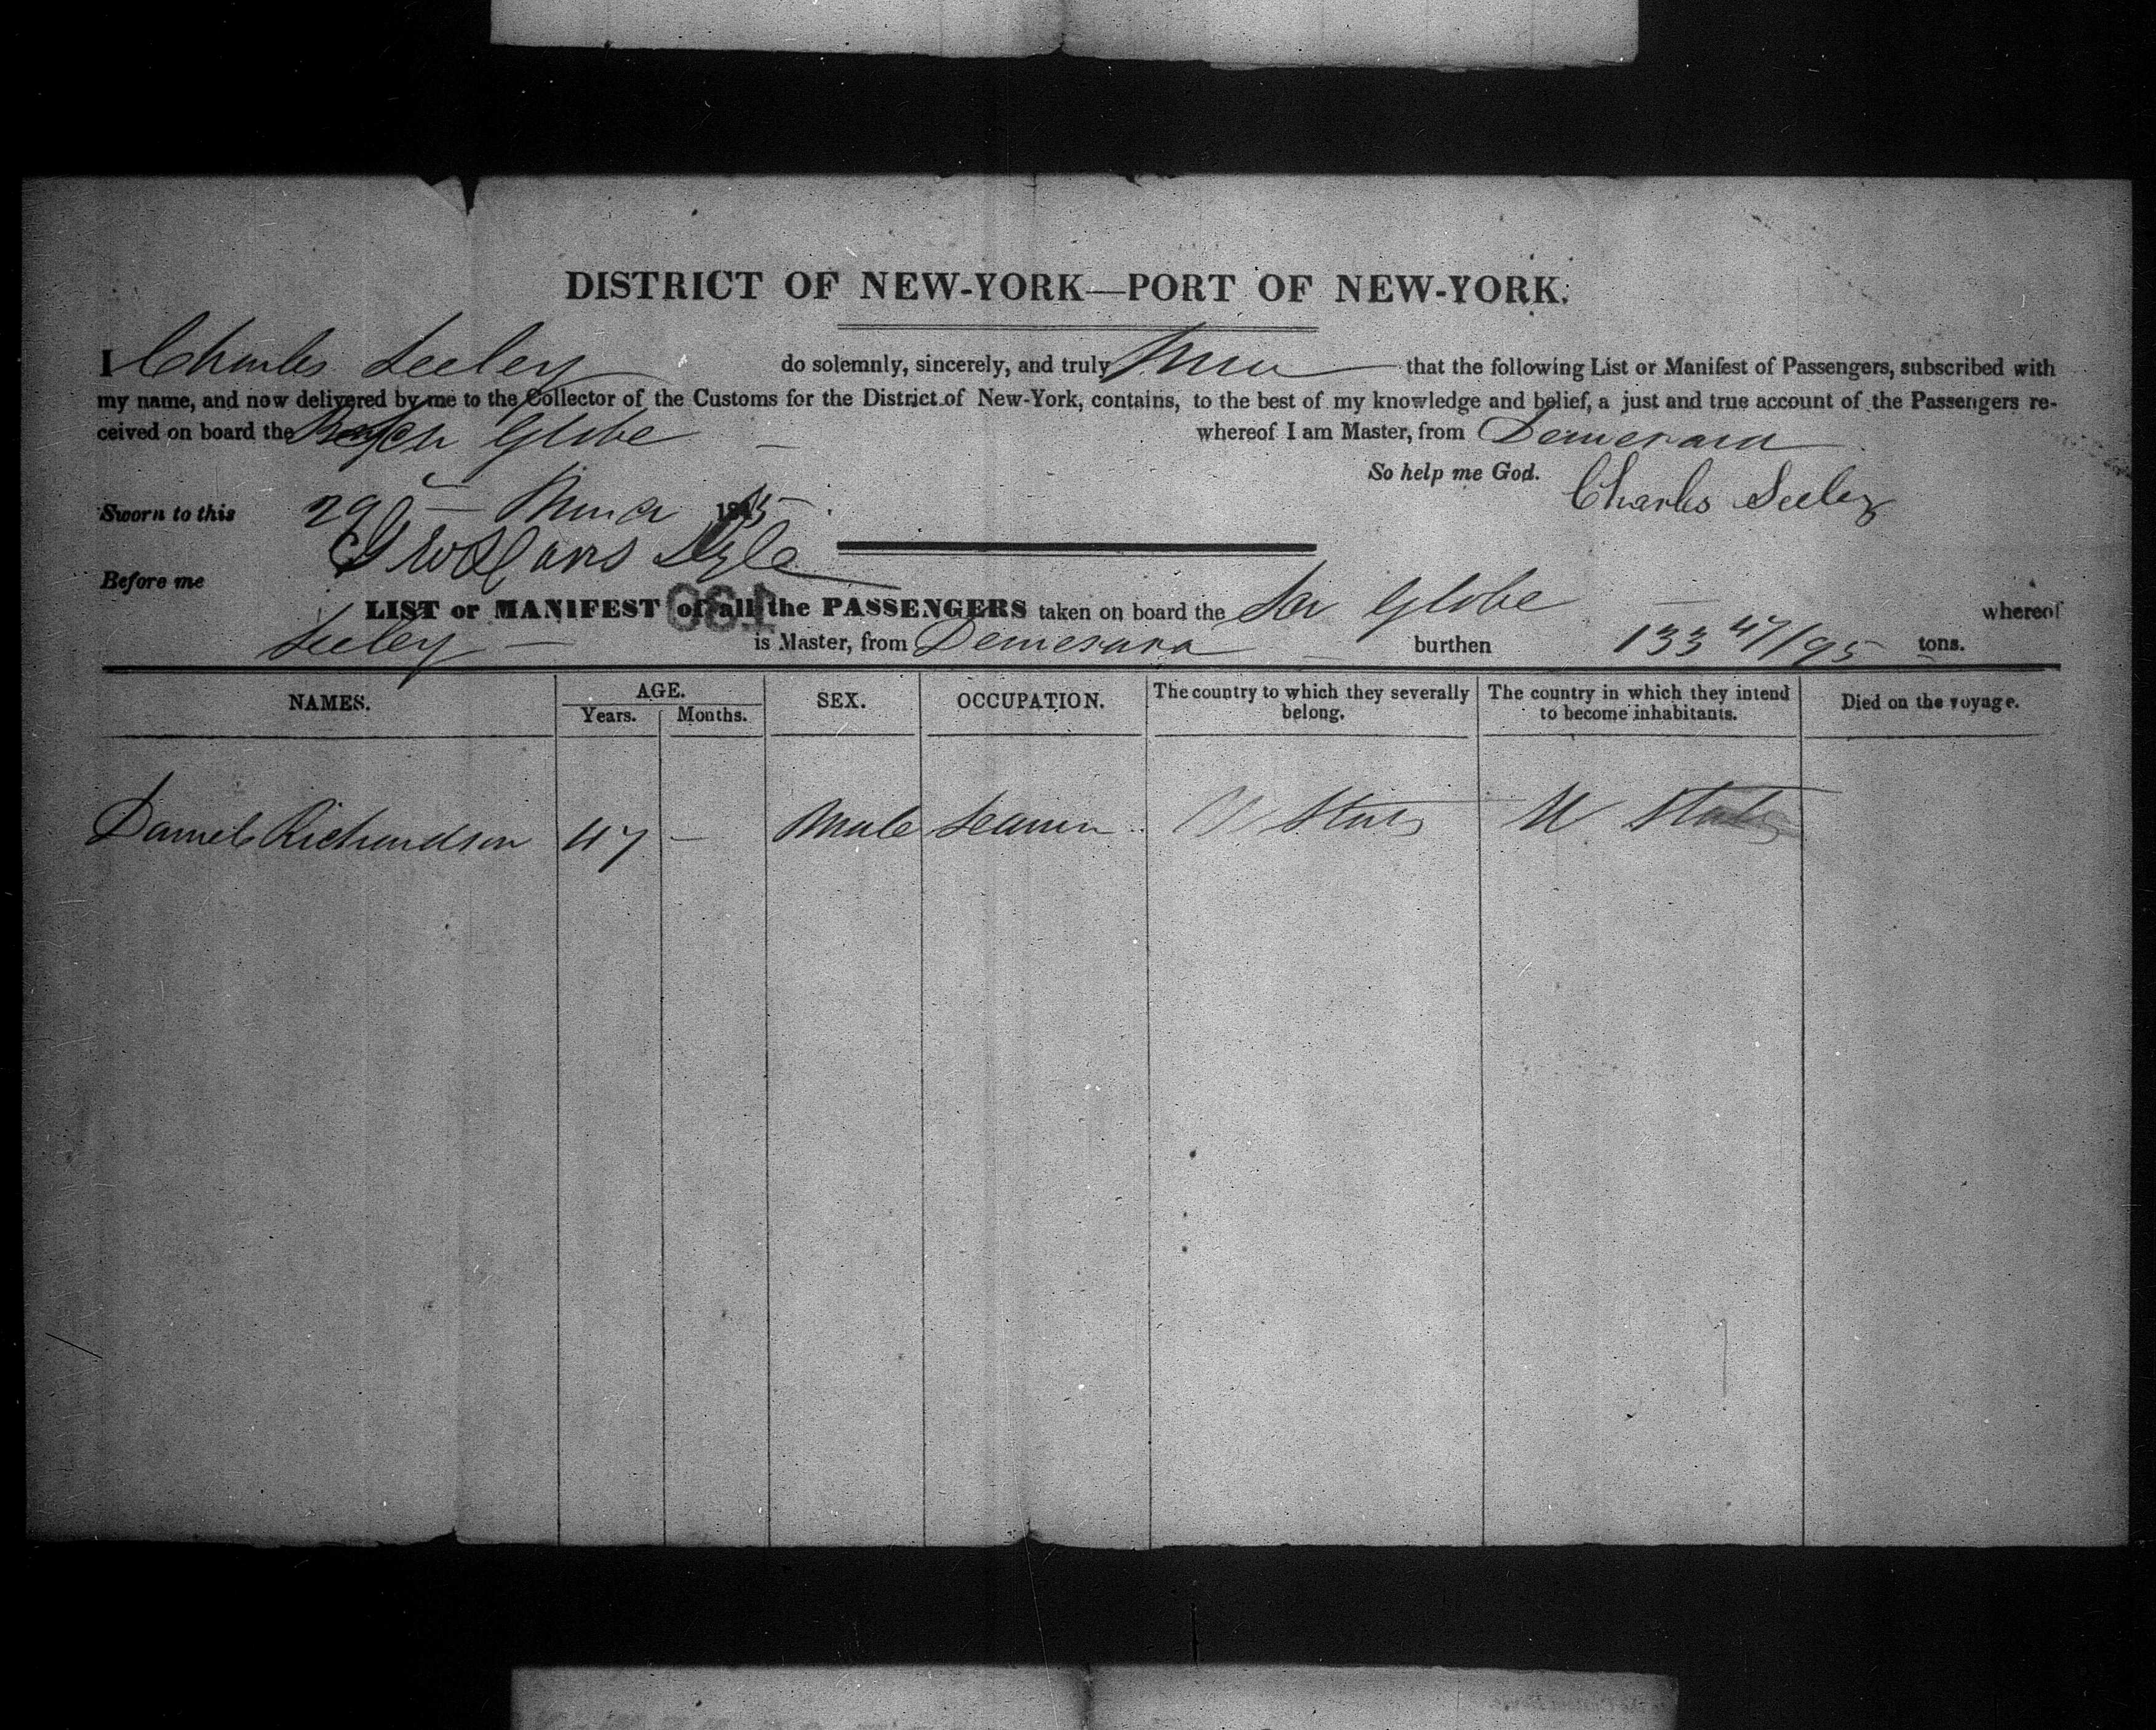 DISTRICT OF NEW-YORK—PORT OF NEW-YORK.
I Charles Seeley do solemnly, sincerely, and truly that the following List or Manifest of Passengers, subscribed with
my name, and now delivered by me to the Collector of the Customs for the District of New-York, contains, to the best of my knowledge and belief, a just and true account of the Passengers re-
ceived on board the Globe whereof I am Master, from Demerara
So help me God. Charles Seeley
Sworn to this 29 1845
Before me
LIST or MANIFEST of all the PASSENGERS taken on board the Globe whereof
Seeley is Master, from Demerara burthen 133 47/95 tons.
NAMES. AGE. SEX. OCCUPATION. The country to which they severally belong. The country in which they intend to become inhabitants. Died on the voyage.
Years. Months.
Daniel Richardson 47 — Male Seaman U States U States